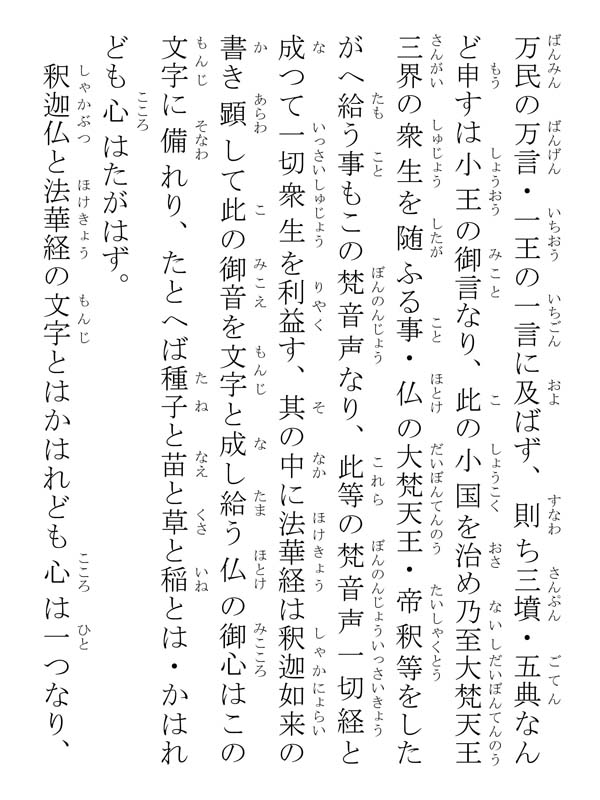 万民の万言・一王の一言に及ばず、則ち三墳・五典なん
ど申すは小王の御言なり、此の小国を治め乃至大梵天王
三界の衆生を随ふる事・仏の大梵天王・帝釈等をした
がへ給う事もこの梵音声なり、此等の梵音声一切経と
成つて一切衆生を利益す、其の中に法華経は釈迦如来の
書き顕して此の御音を文字と成し給う仏の御心はこの
文字に備れり、たとへば種子と苗と草と稲とは・かはれ
ども心はたがはず。
釈迦仏と法華経の文字とはかはれども心は一つなり、